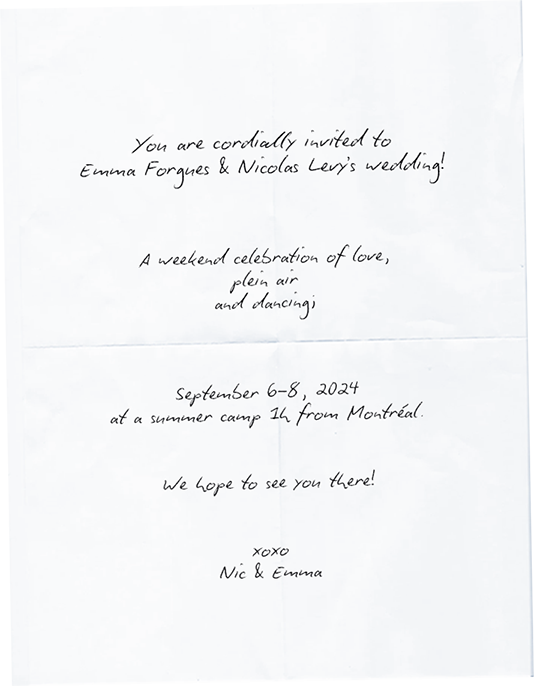 You are cordially invited to
Emma Forgues & Nicolas Levy's wedding!
A weekend celebration of love,
plein air
and dancing;
September 6-8, 2024
at a summer camp 1h from Montréal.
We hope to see you there!
xoxo
Nic & Emma